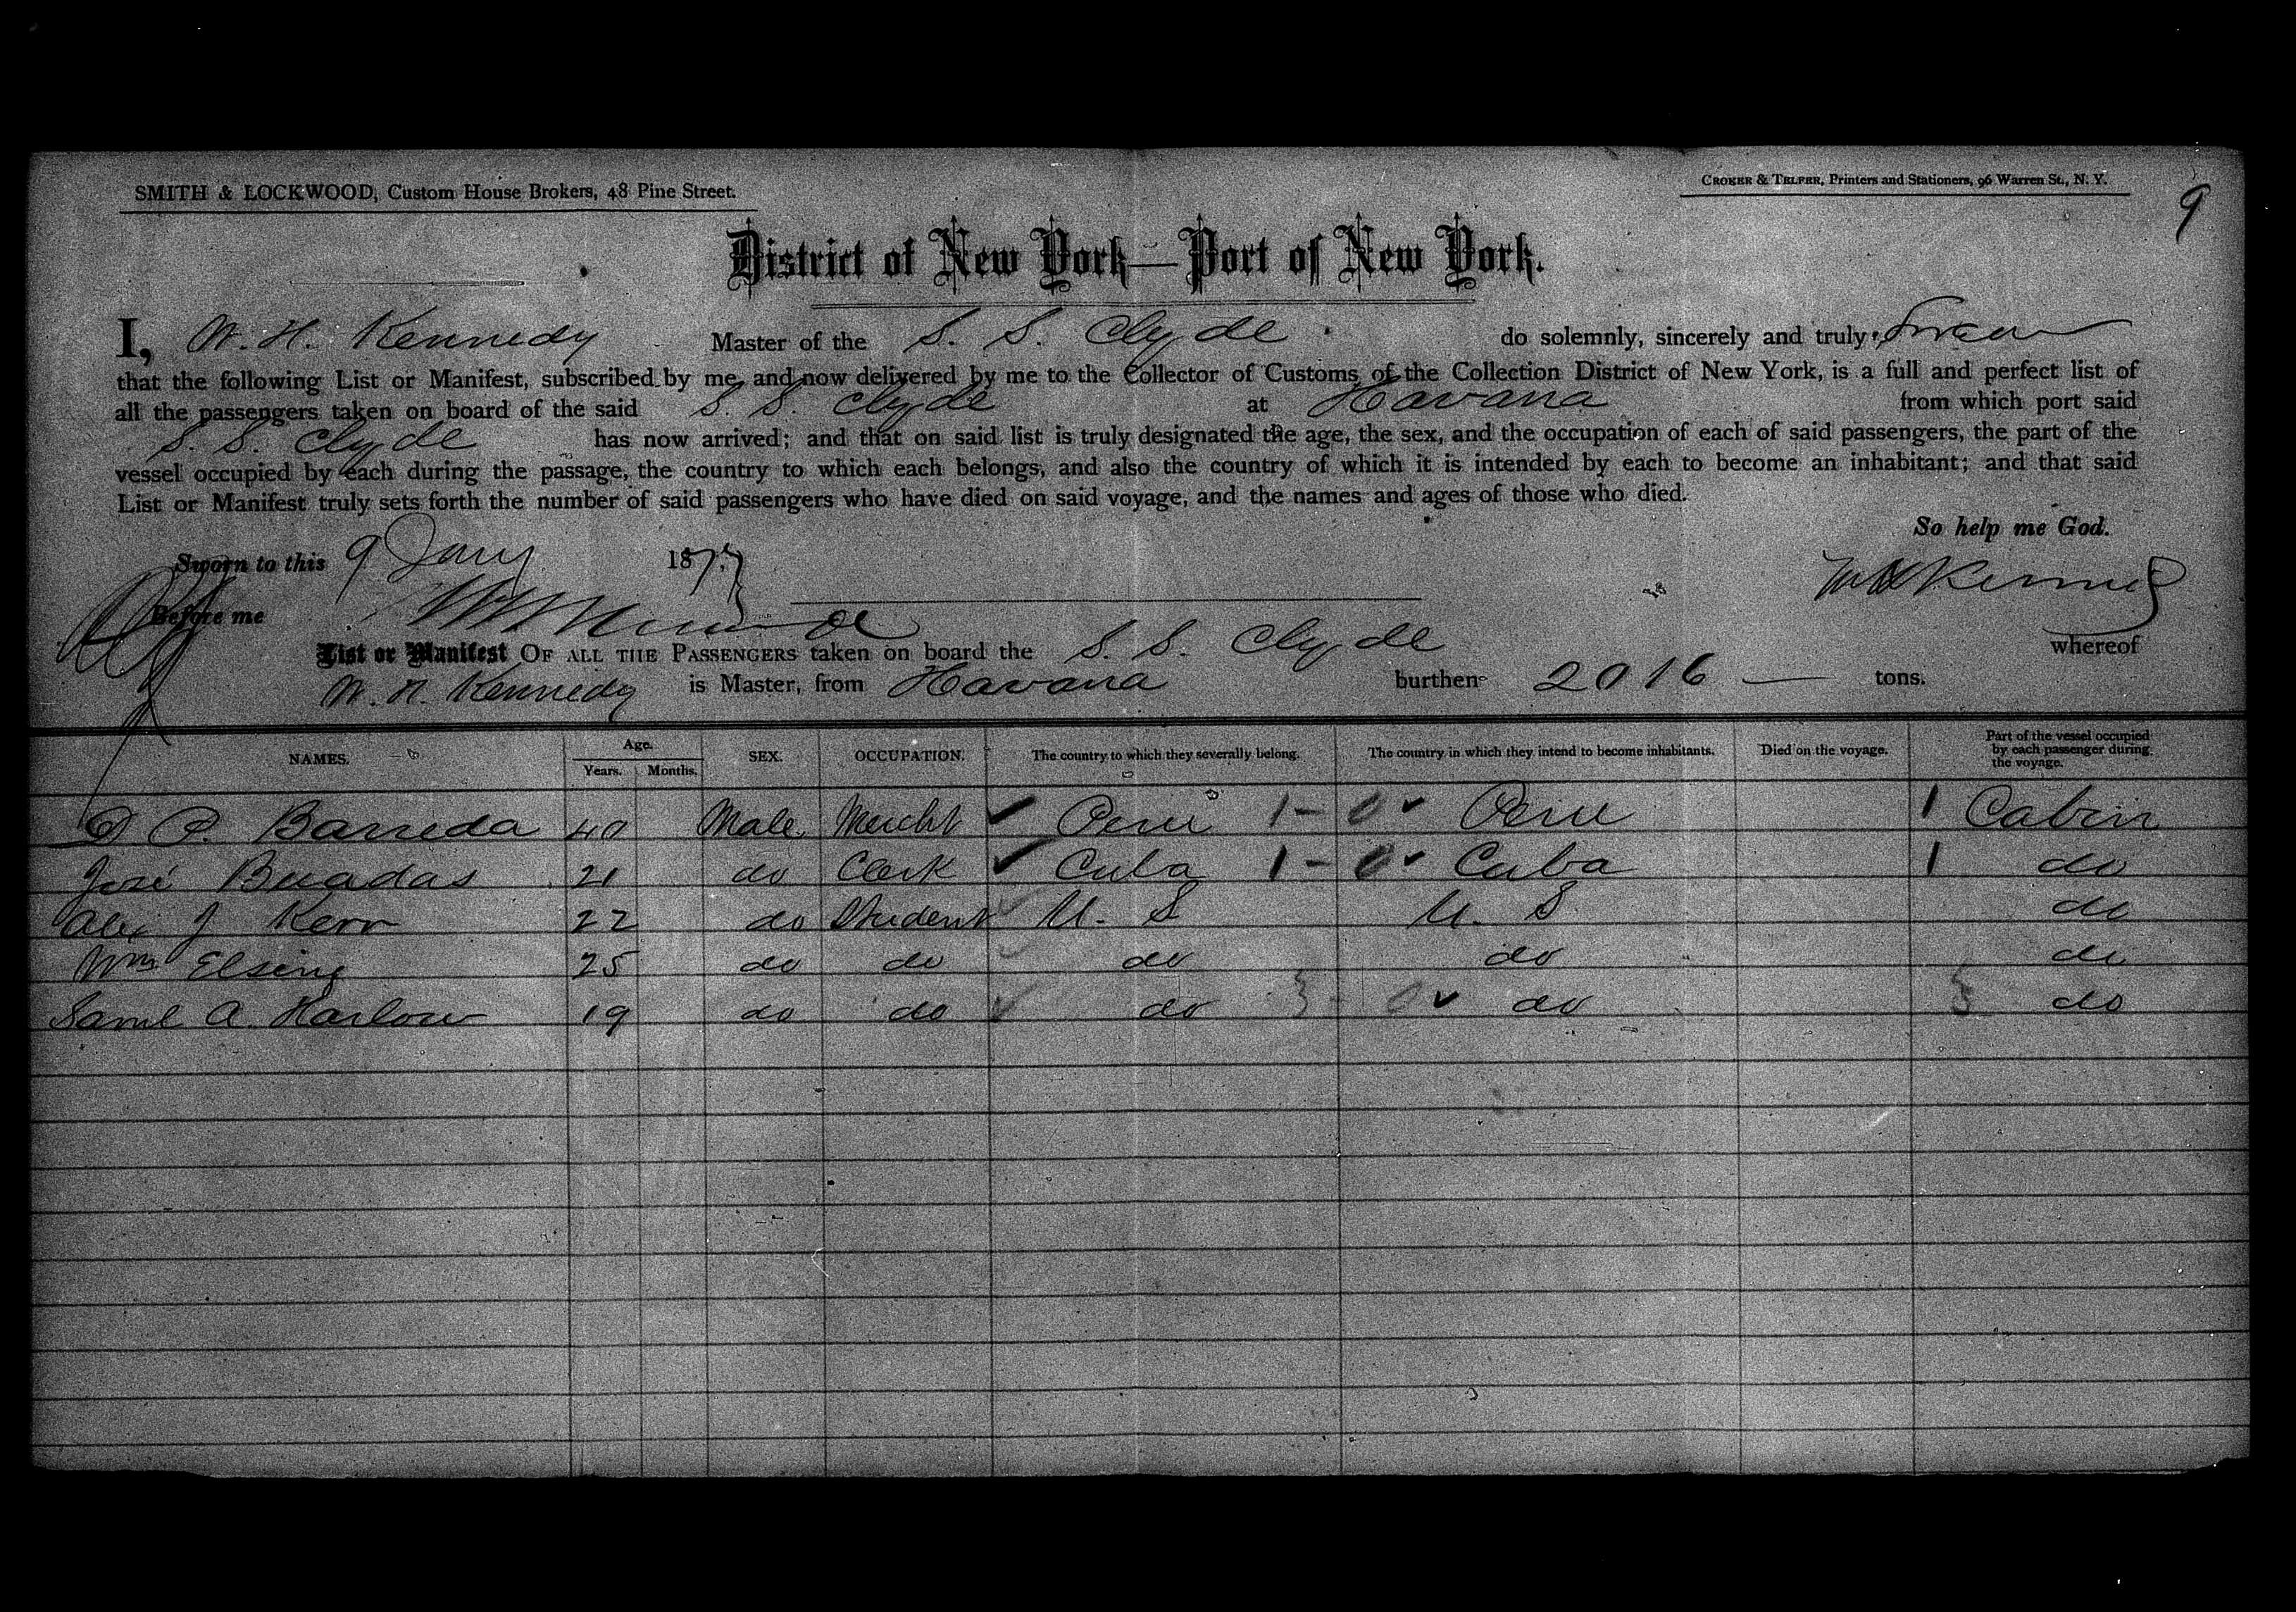 SMITH & LOCKWOOD, Custom House Brokers, 48 Pine Street.
CROKER & TELFER, Printers and Stationers, 96 Warren St., N. Y.
9
District of New York—Port of New York.
I, W. H. Kennedy Master of the S. S. Clyde do solemnly, sincerely and truly swear
that the following List or Manifest, subscribed by me, and now delivered by me to the Collector of Customs of the Collection District of New York, is a full and perfect list of
all the passengers taken on board of the said S. S. Clyde at Havana from which port said
S. S. Clyde has now arrived; and that on said list is truly designated the age, the sex, and the occupation of each of said passengers, the part of the
vessel occupied by each during the passage, the country to which each belongs, and also the country of which it is intended by each to become an inhabitant; and that said
List or Manifest truly sets forth the number of said passengers who have died on said voyage, and the names and ages of those who died.
So help me God.
Sworn to this 9 Jany 1877
W H Kennedy
Before me
List or Manifest OF ALL THE PASSENGERS taken on board the S. S. Clyde whereof
W. H. Kennedy is Master, from Havana burthen 2016 — tons.
NAMES. Age. Years. Months. SEX. OCCUPATION. The country to which they severally belong. The country in which they intend to become inhabitants. Died on the voyage. Part of the vessel occupied by each passenger during the voyage.
D P. Barreda 40 Male Mercht Peru 1 - 0 Peru 1 Cabin
José Buadas 21 do Clerk Cuba 1 - 0 Cuba 1 do
Alex J Kerr 22 do Student U. S U. S do
Wm Elsing 25 do do do do do
Saml A. Harlow 19 do do do 3 - 0 do 3 do